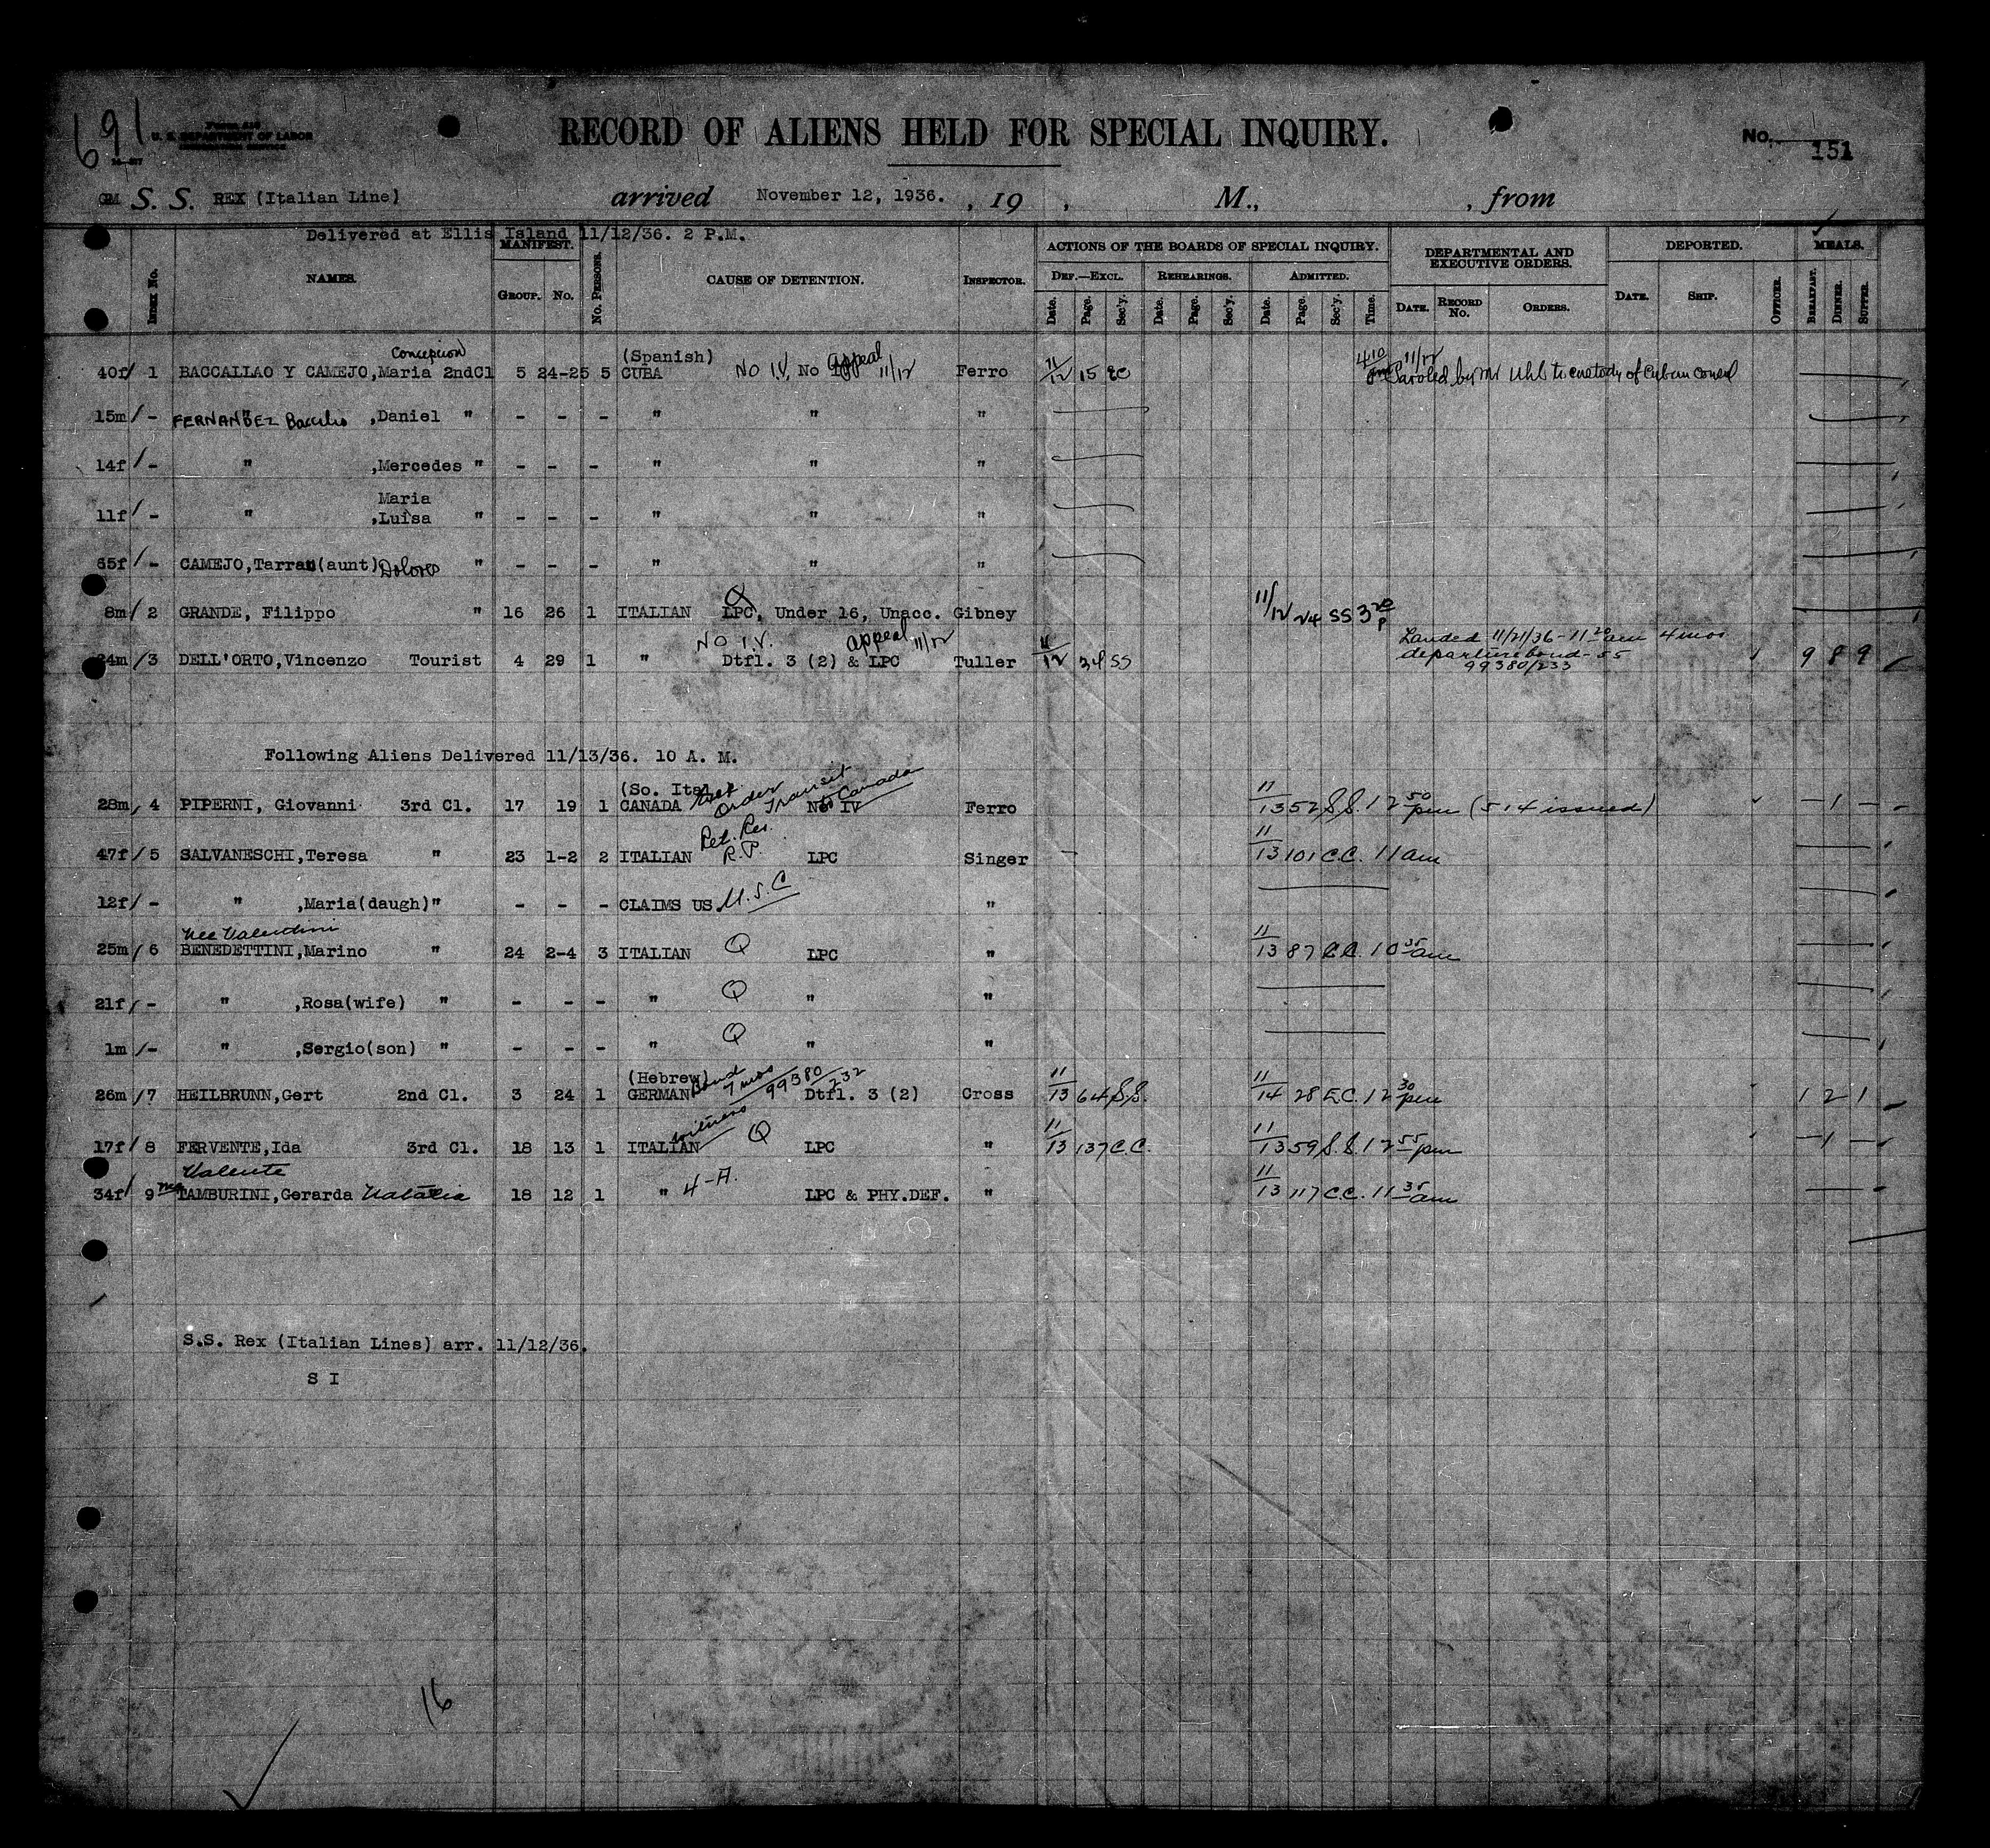 691
Form 416
U. S. DEPARTMENT OF LABOR
IMMIGRATION SERVICE
RECORD OF ALIENS HELD FOR SPECIAL INQUIRY.
No. 151
GM S. S. REX (Italian Line) arrived November 12, 1936. , 19 , M., , from
Delivered at Ellis Island 11/12/36. 2 P.M.
Index No. NAMES. MANIFEST. GROUP. No. No. PERSONS. CAUSE OF DETENTION. INSPECTOR. ACTIONS OF THE BOARDS OF SPECIAL INQUIRY. DEPARTMENTAL AND EXECUTIVE ORDERS. DEPORTED. MEALS.
DEF.—EXCL. REHEARINGS. ADMITTED.
Date. Page. Sec'y. Date. Page. Sec'y. Date. Page. Sec'y. Time. DATE. RECORD No. ORDERS. DATE. SHIP. OFFICER. BREAKFAST. DINNER. SUPPER.
Concepcion (Spanish) appeal 4 10 11/12
40f/ 1 BACCALLAO Y CAMEJO,Maria 2ndCl 5 24-25 5 CUBA No I.V., No 11/12 Ferro 11/12 15 Paroled by Mr Uhl to custody of Cuban Consul
15m/ - FERNANDEZ ,Daniel " - - - " " "
14f/ - " ,Mercedes " - - - " " "
Maria
11f/ - " ,Luisa " - - - " " "
65f/ - CAMEJO,Tarrau(aunt) Dolores " - - - " " "
8m/ 2 GRANDE, Filippo " 16 26 1 ITALIAN Q LPC, Under 16, Unacc. Gibney 11/12 24 SS 3 20 P
No I.V. appeal 11/12 Landed 11/21/36 - 11 20 am 4 mos
24m/3 DELL'ORTO,Vincenzo Tourist 4 29 1 " Dtfl. 3 (2) & LPC Tuller 11/12 34 SS departure bond - SS 9 8 9
99380/233
Following Aliens Delivered 11/13/36. 10 A. M.
(So. Ital) Order Transit to Canada
28m, 4 PIPERNI, Giovanni 3rd Cl. 17 19 1 CANADA No IV Ferro 11/13 52 S.S. 12 50 pm (514 issued) - 1 -
Ret. Res.
47f/5 SALVANESCHI,Teresa " 23 1-2 2 ITALIAN R.P. LPC Singer 11/13 101 C.C. 11 am
12f/- " ,Maria(daugh)" - - - CLAIMS US U.S.C "
nee Valentini
25m/6 BENEDETTINI,Marino " 24 2-4 3 ITALIAN Q LPC " 11/13 87 C.C. 10 35 am
21f/- " ,Rosa(wife) " - - - " Q " "
1m/- " ,Sergio(son) " - - - " Q " "
(Hebrew) Bond 7 mos 99380/232
26m/7 HEILBRUNN,Gert 2nd Cl. 3 24 1 GERMAN Dtfl. 3 (2) Cross 11/13 64 S.S. 11/14 28 E.C. 12 30 pm 1 2 1
witness
17f/ 8 FERVENTE,Ida 3rd Cl. 18 13 1 ITALIAN Q LPC " 11/13 137 C.C. 11/13 59 S.S. 12 55 pm - 1 -
Valente
34f/ 9 TAMBURINI,Gerarda Natalia 18 12 1 " 4-A. LPC & PHY.DEF. " 11/13 117 C.C. 11 35 am
S.S. Rex (Italian Lines) arr. 11/12/36.
S I
16